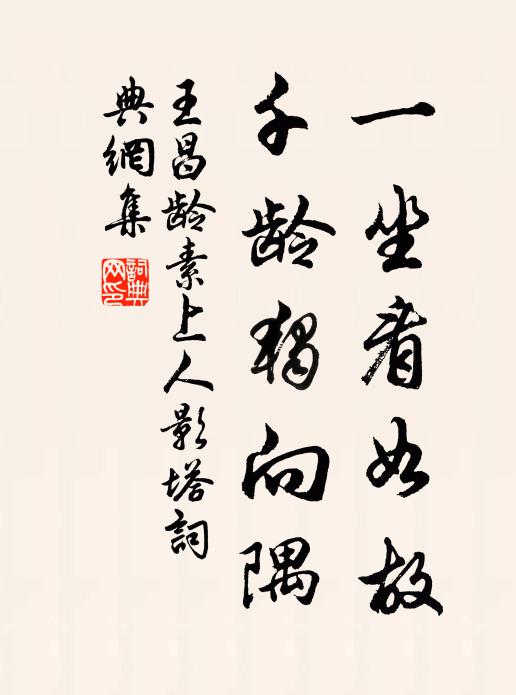 一坐看如故
千龄独向隅
王昌龄素上人影塔詞
典網集
詞典
网印